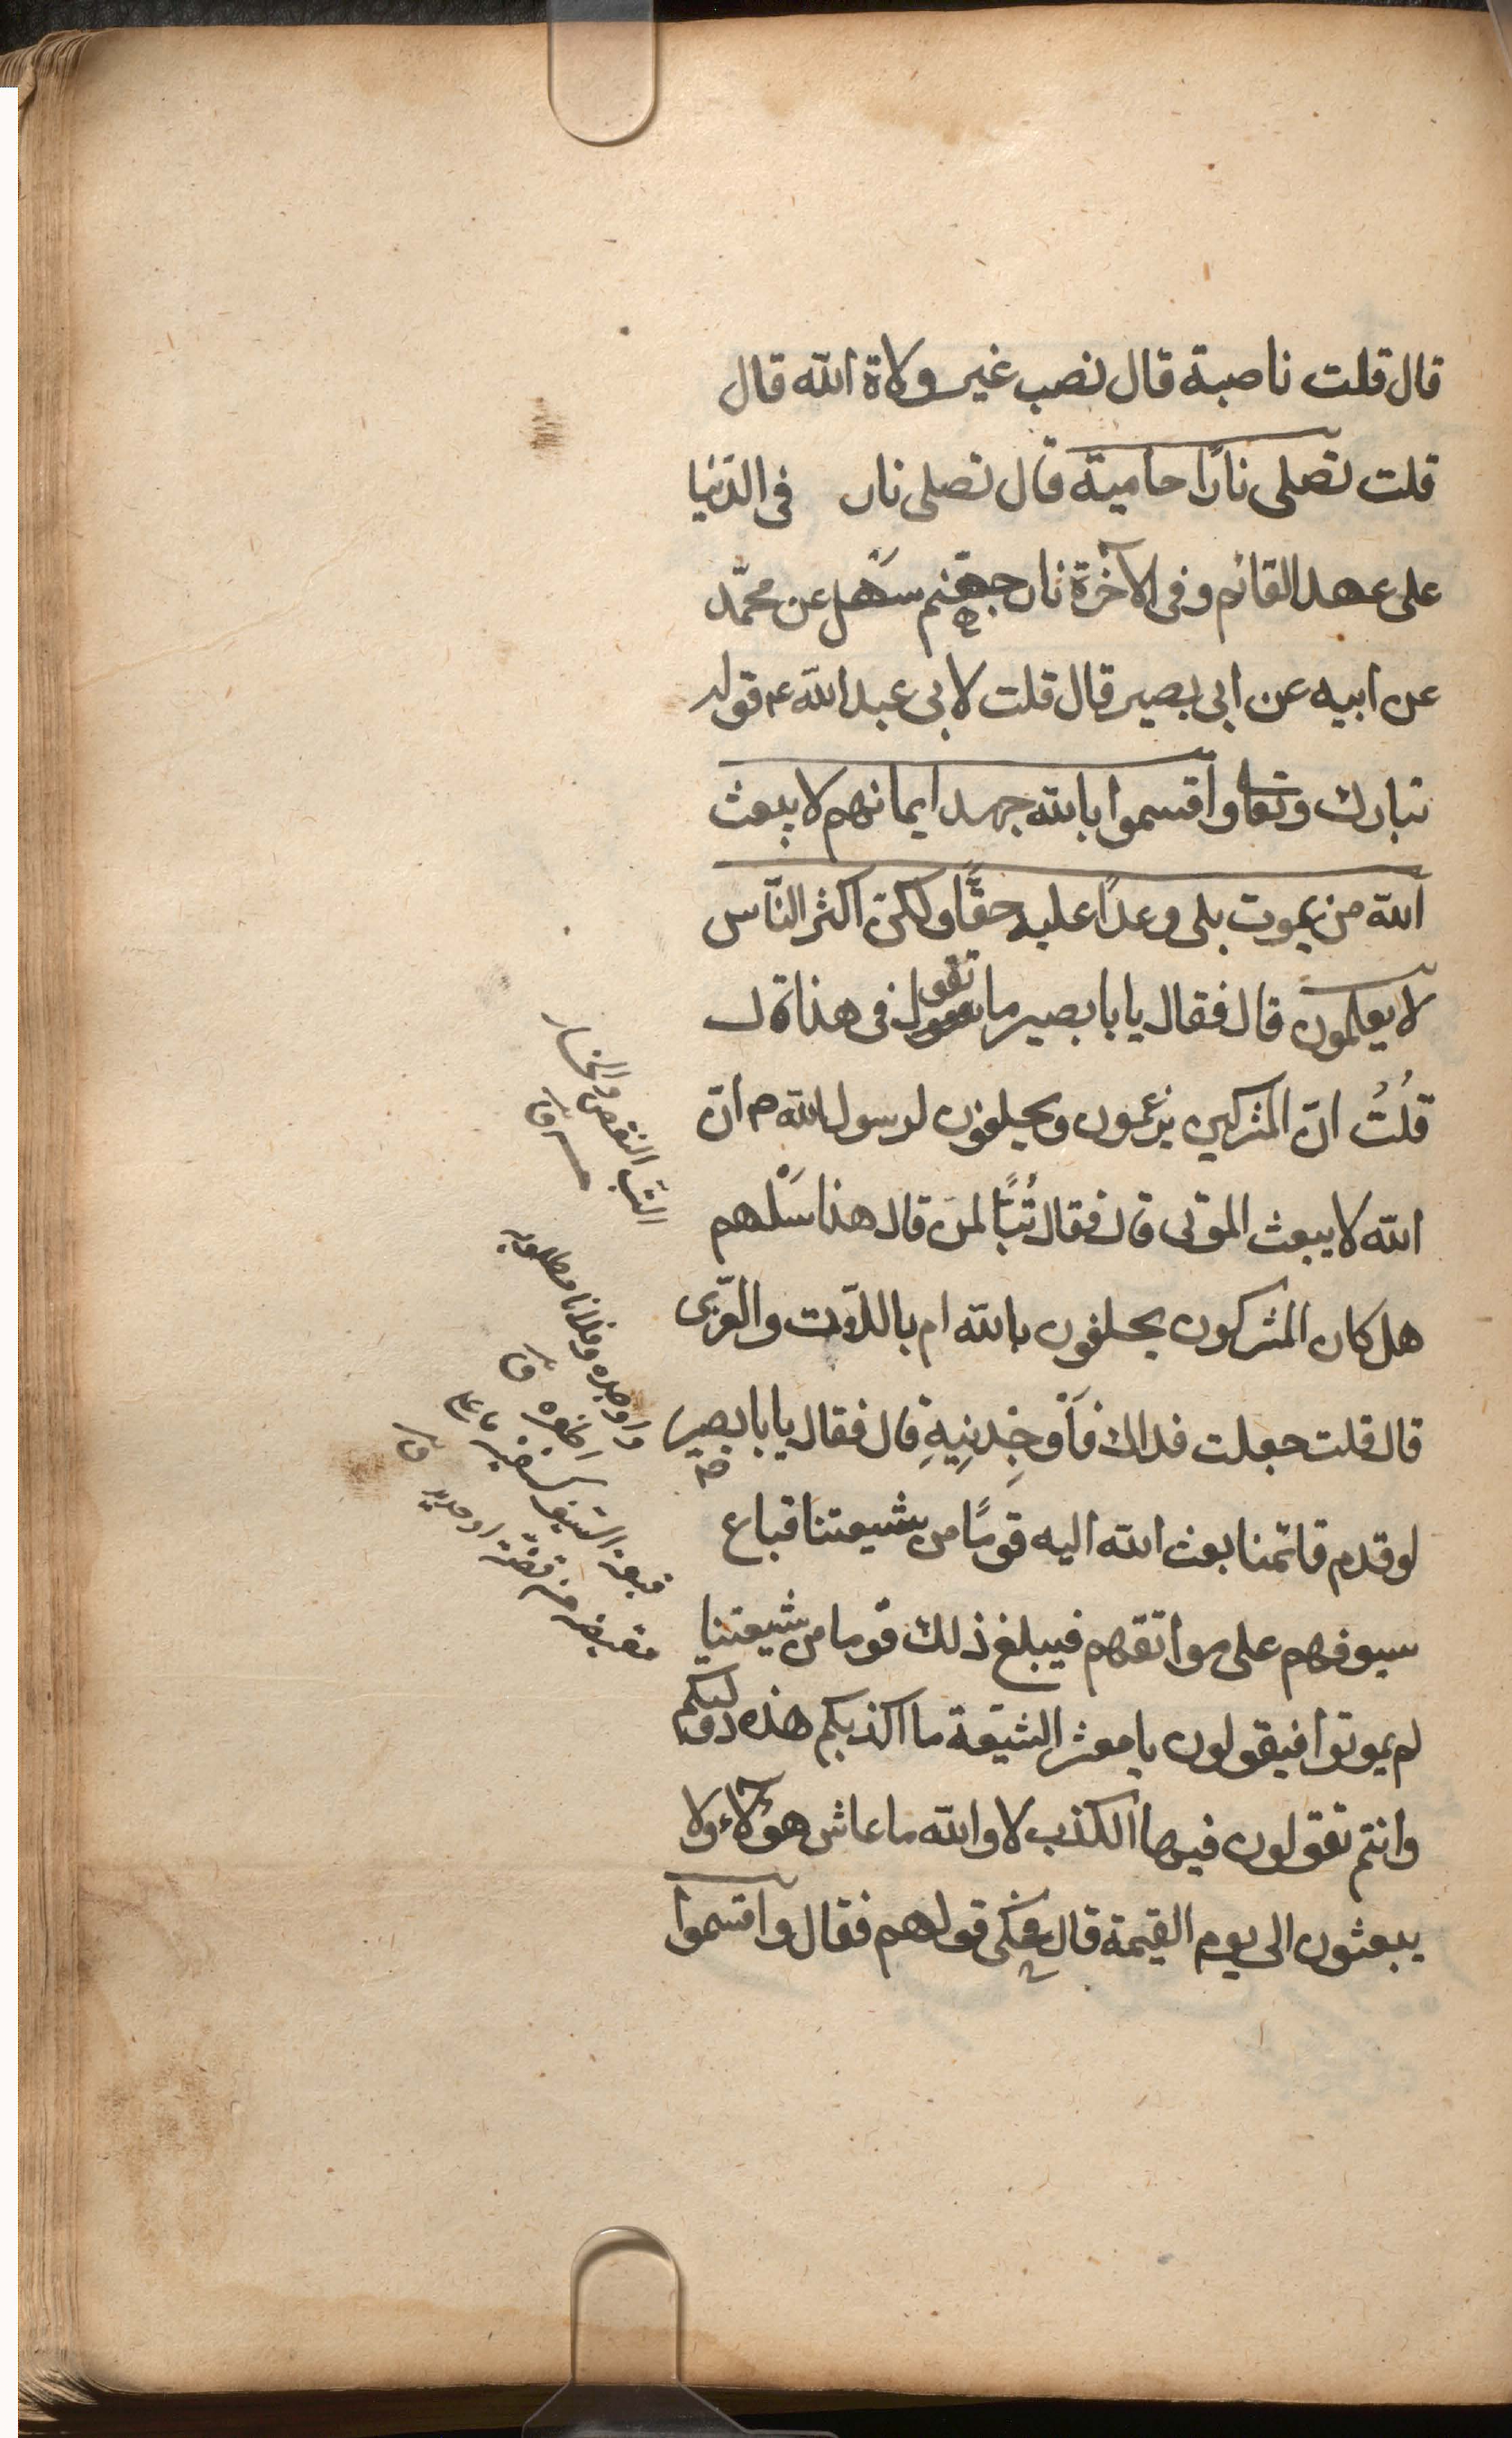 قال قلت ناصبة قال نصب غير ولاة الله قال
قلت تصلى نارًا حامية قال تصلى نار فى الدّنيا
على عهد القائم وفى الآخرة نار جهنم سهل عن محمّد
عن ابيه عن ابى بصير قال قلت لابى عبد الله ع قوله
تبارك وتعا واقسموا بالله جهد ايمانهم لا يبعث
الله من يموت بلى وعدًا عليه حقًّا ولكن اكثر النّاس
لا يعلمون قال فقال يا با بصير ما تقول فى هذه
قُلتُ انّ المشركين يزعمون ويحلفون لرسول الله ص انّ
الله لا يبعث الموتى قال فقال تُبًّا لمن قال هذا سَلْهم
هل كان المشركون يحلفون بالله ام باللّات والعّزى
قال قلت جعلت فداك فَأَوْجِدْنِيهِ قال فقال يا با بصير
لو قدم قائمنا بعث الله اليه قومًا من شيعتنا قباع
سيوفهم على عواتقهم فيبلغ ذلك قوما من شيعتنا
لم يموتوا فيقولون يا معشر الشيعة ما اكذبكم هذه دولتكم
وانتم تقولون فيها الكذب لا والله ما عاش هؤلاء ولا
يبعثون الى يوم القيمة قال فحكى قولهم فقال واقسموا
التبّ النقص والخسار
ق
واوجده فلانا مطلوبه
اظفره ق
قبيعة السيف كسفينة ما على
مقبضه من فضّة او حديد ق